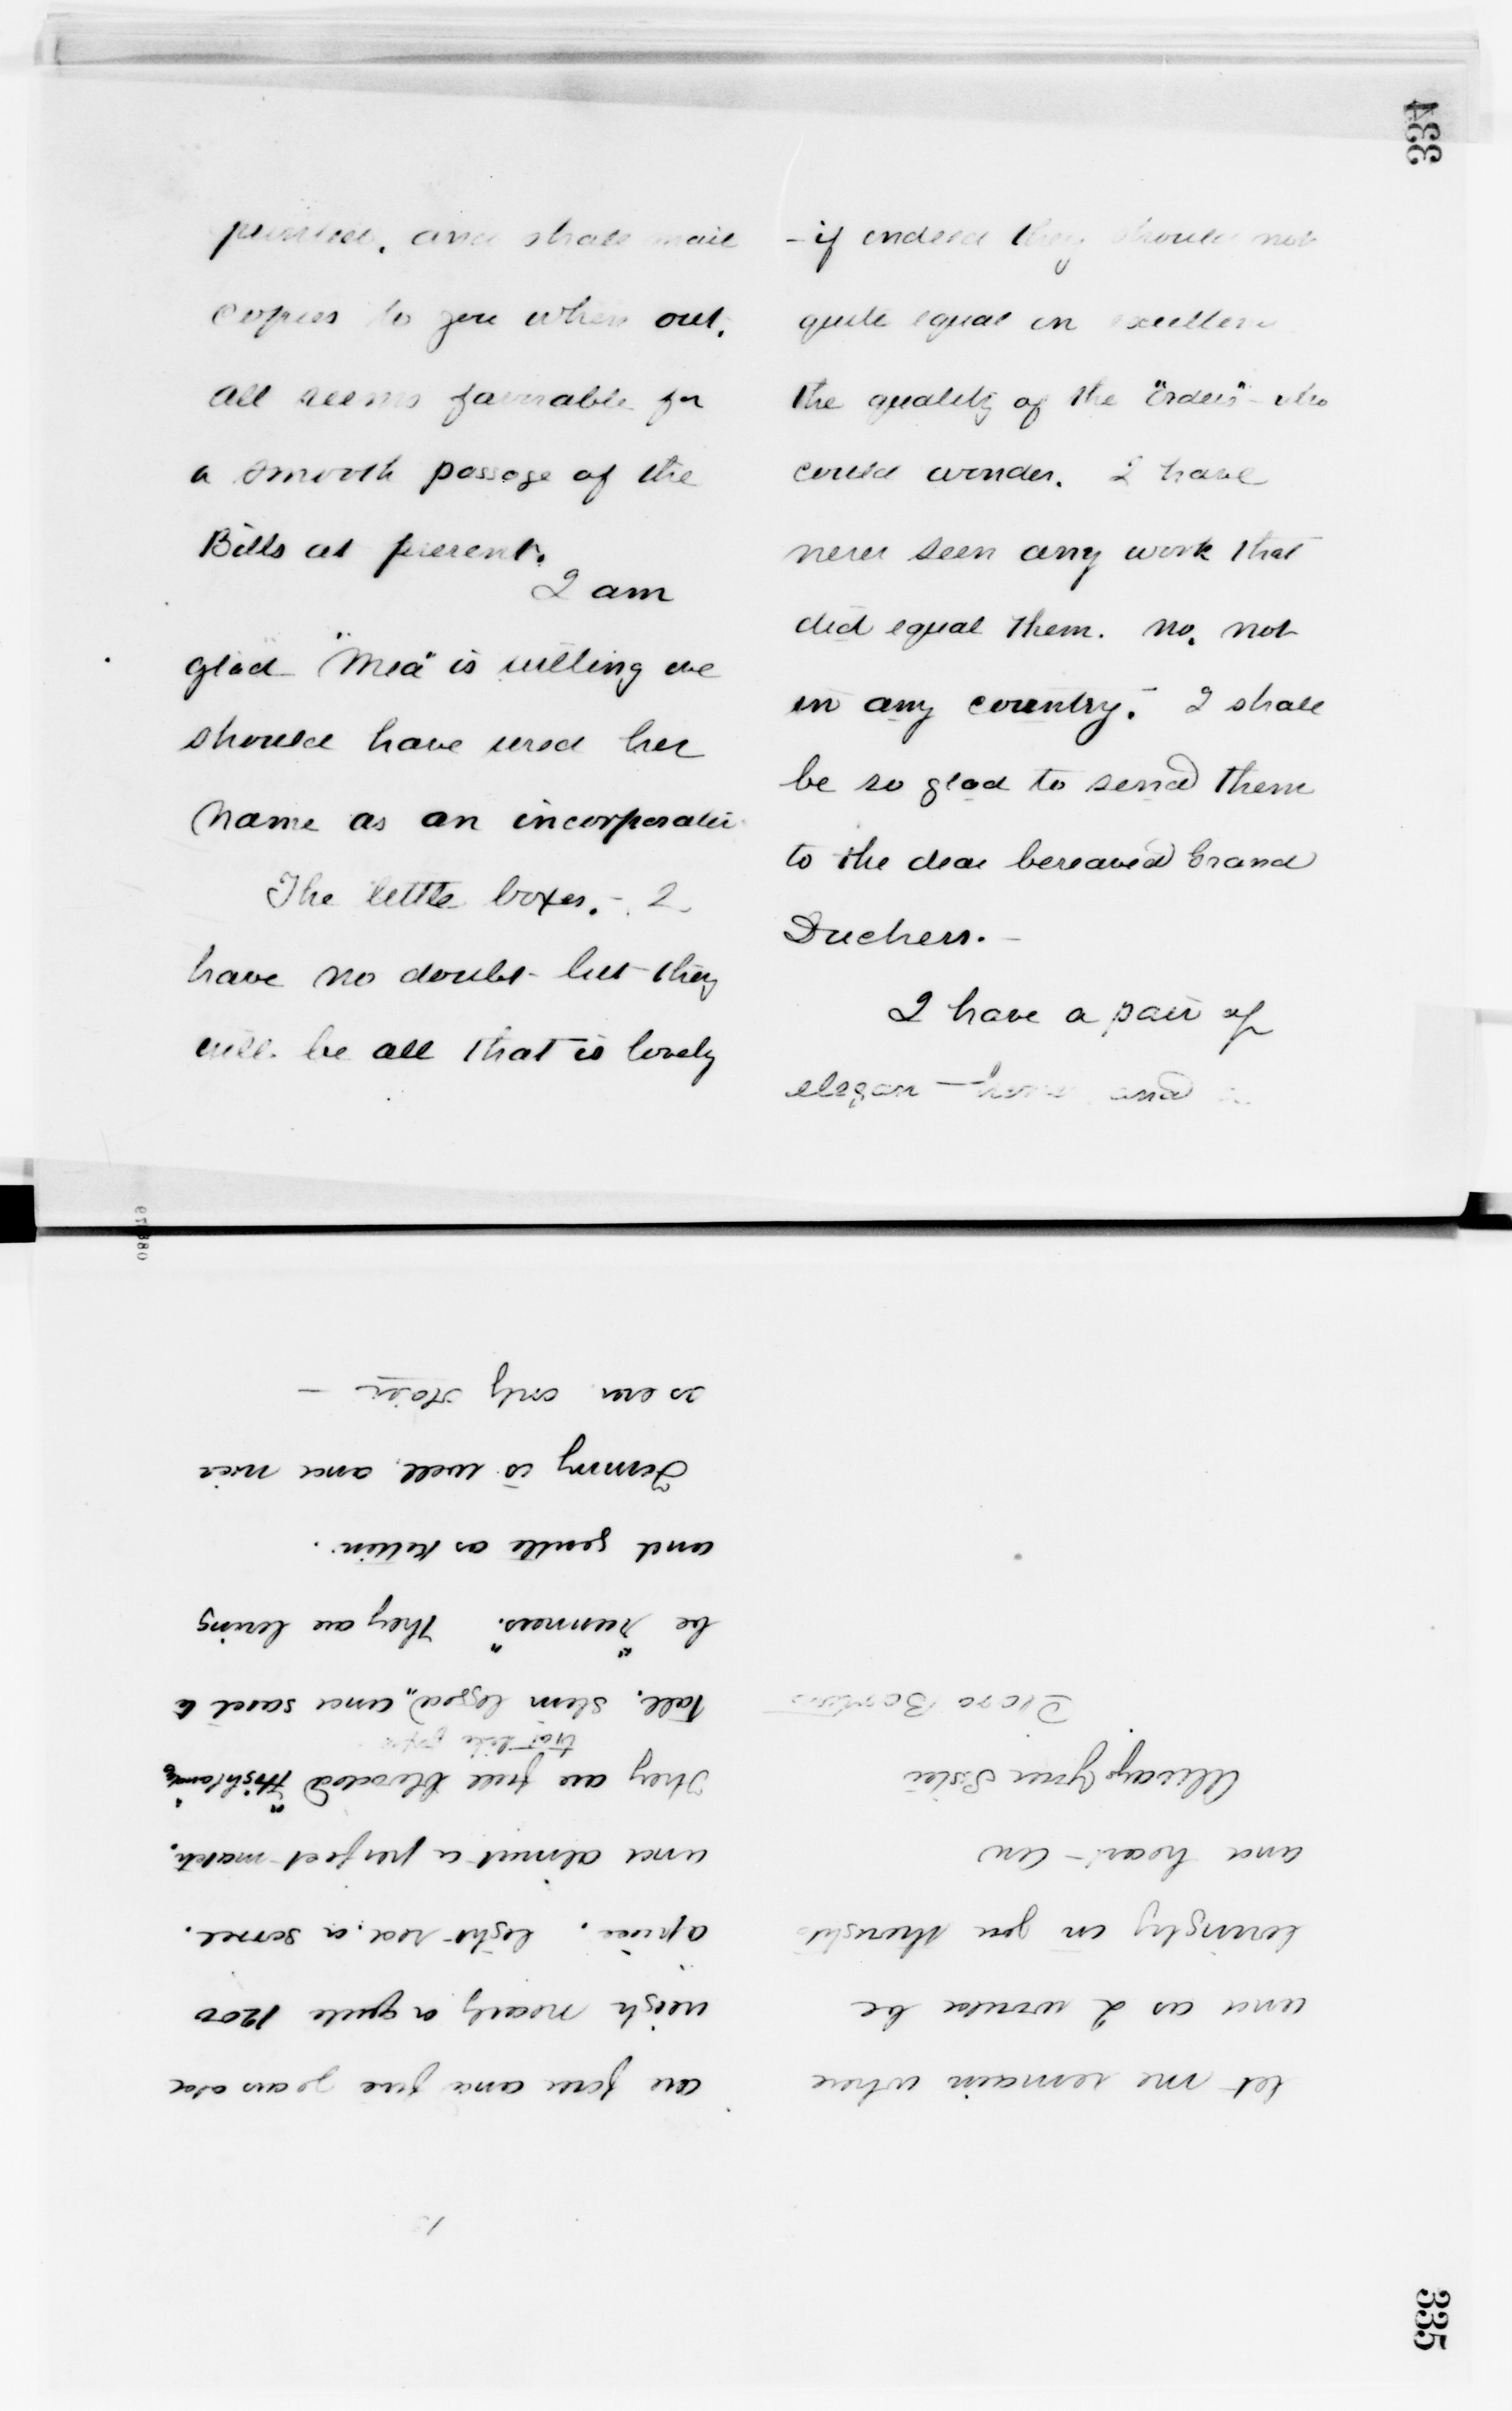 334
printed, and shall mail
copies to you when out.
All seems favorable for
a smooth passage of the
Bills at present.
I am
glad "Mea" is willing we
should have used her
name as an incorporator
The little boxes. - I
have no doubt but they
will be all that is lovely
- if indeed they should not
quite equal in excellence
the quality of the "orders" - who
could wonder. I have
never seen any work that
did equal them. No, not
in any country. - I shall
be so glad to send them
to the dear bereaved Grand
Duchess. -
I have a pair of
elegant horses and
are four and five years old
weigh nearly or quite 1200
apiece. light red, or sorrel.
and almost a perfect match.
They are full blooded "Highlands"
tall, slim legged, and said to
be "runners." They are loving
and gentle as kitten.
Jimmy is well and nice
as ever only
let me remain where
and as I would be
lovingly in your thoughts
and heart -
Always your Sister
Clara Barton
335